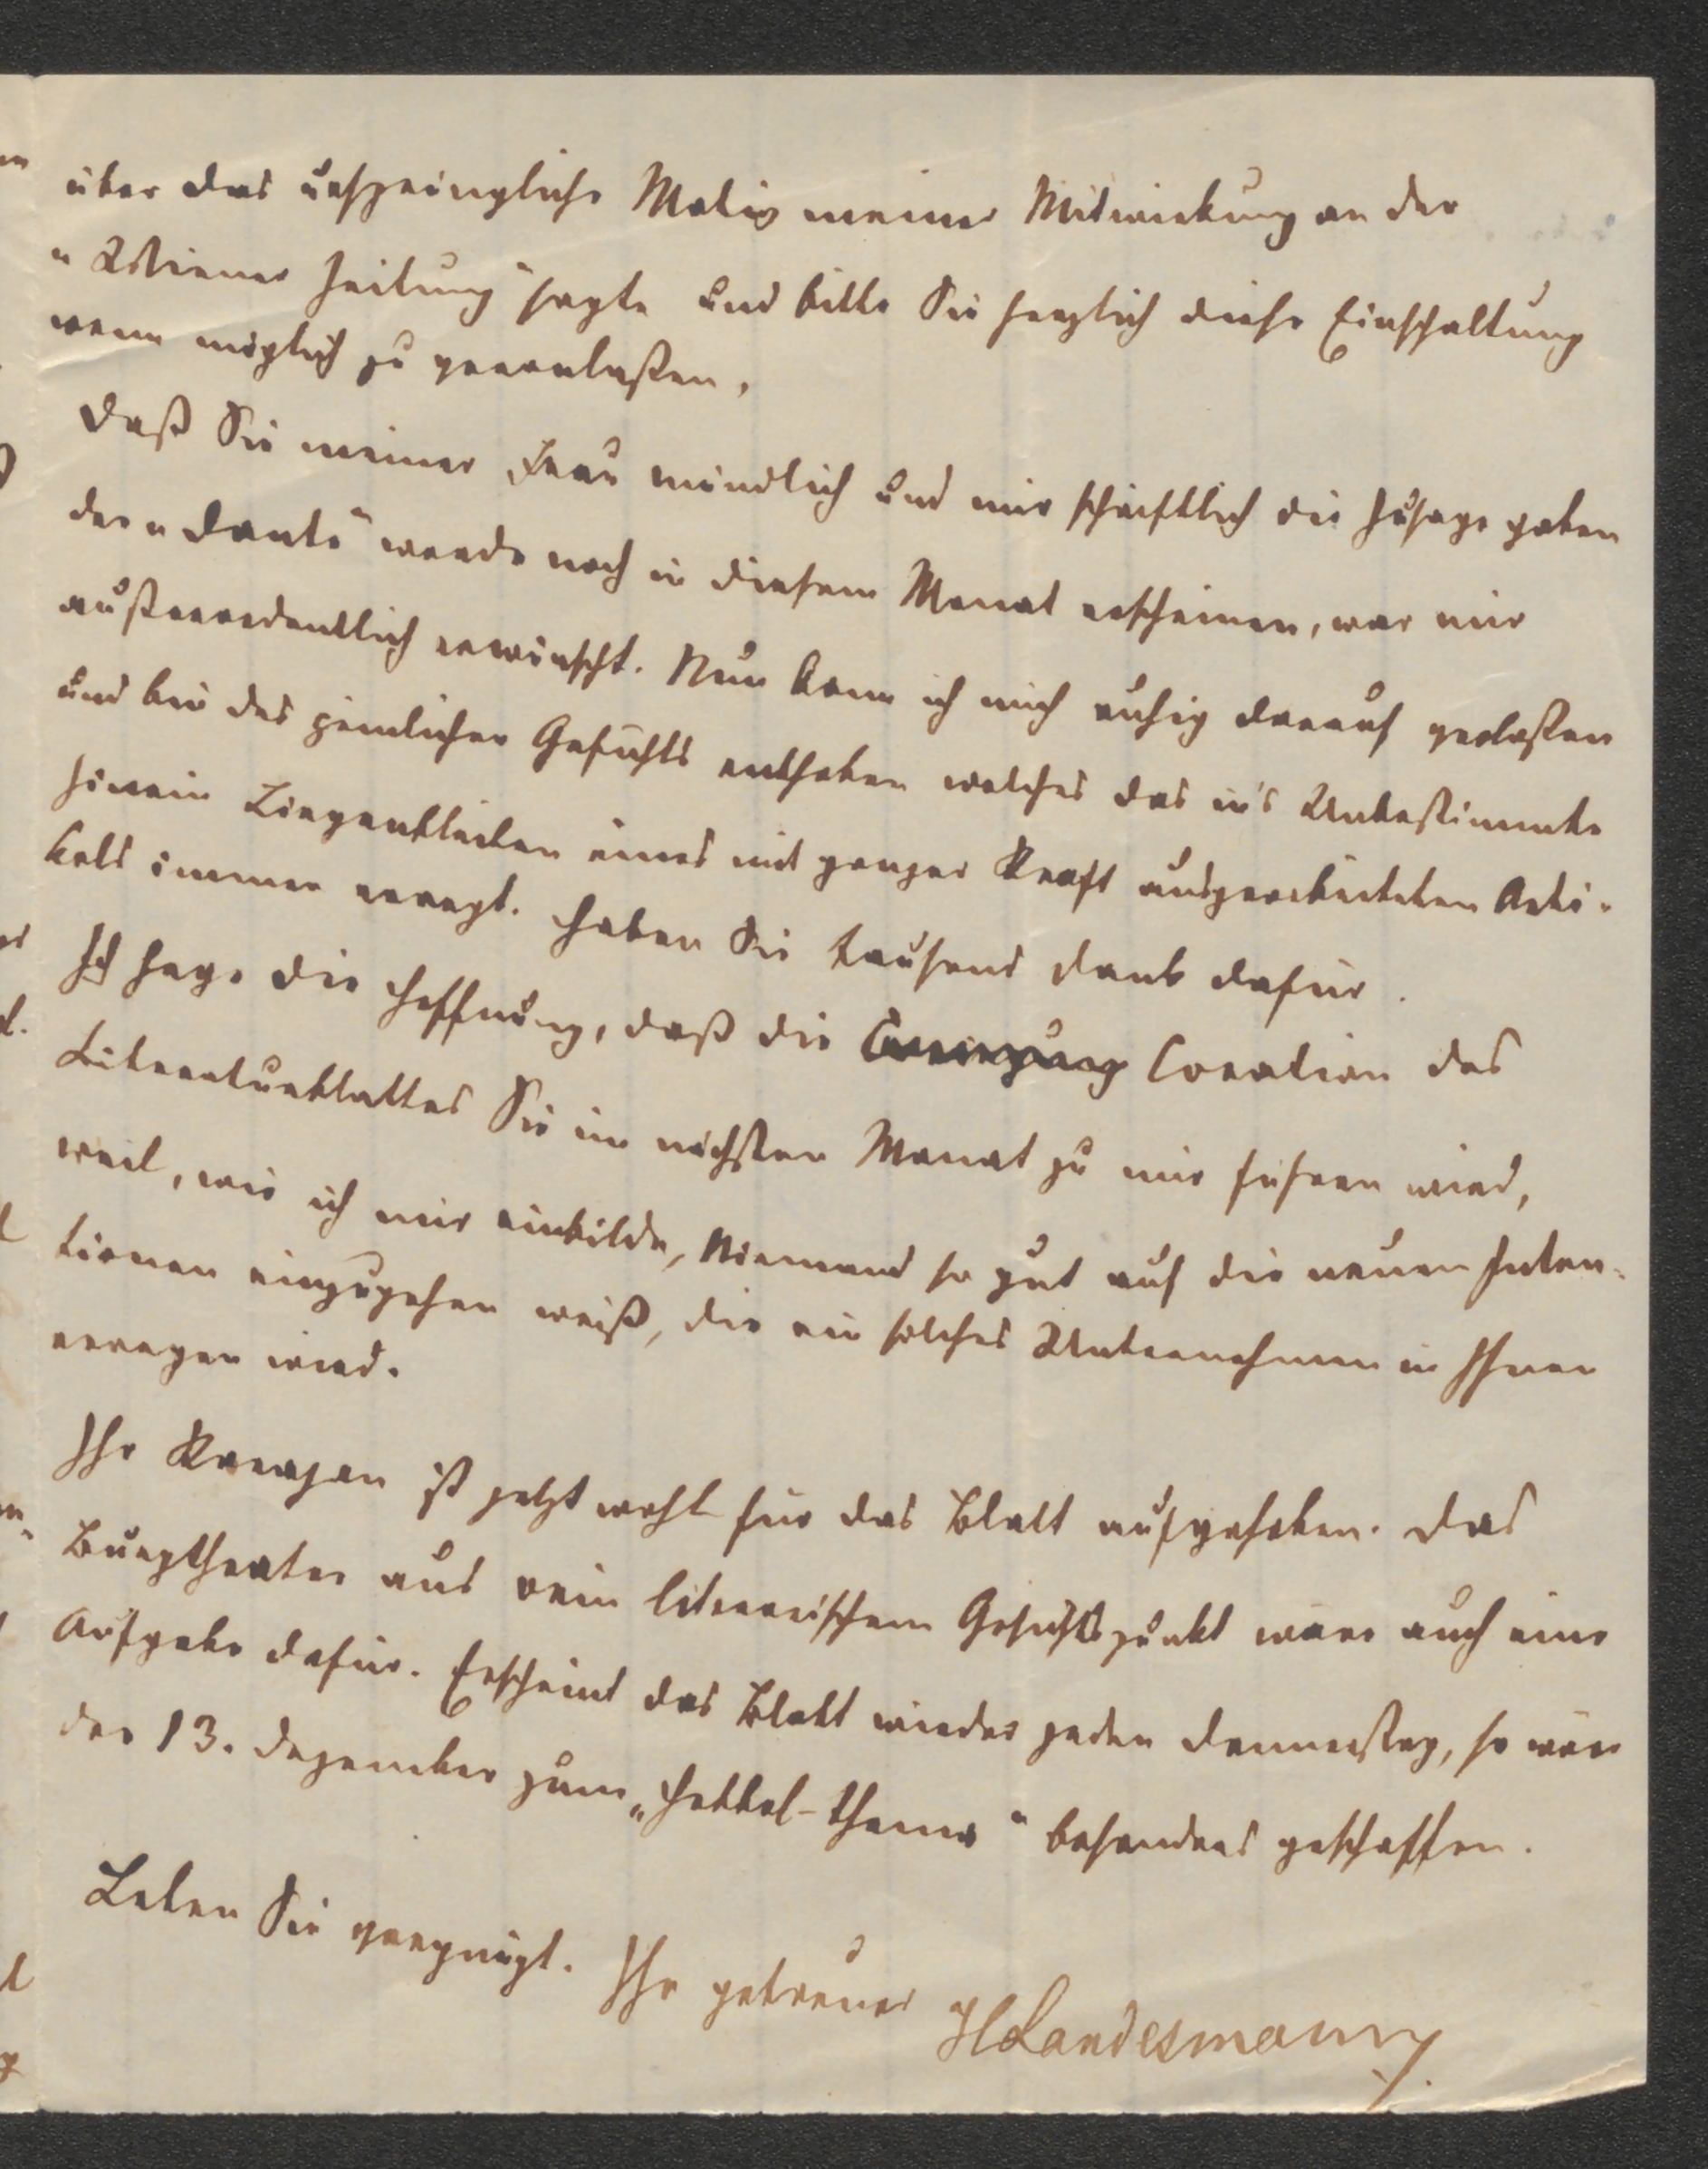 über das ursprüngliche Motiv meiner Mitwirkung an der
„Wiener Zeitung“ sagte und bitte Sie herzlich diese Einschaltung
wenn möglich zu veranlaßen.
Daß Sie meiner Frau mündlich und mir schriftlich die Zusage gaben
der „Dante“ werde noch in diesem Monat erscheinen, war mir
außerordentlich erwünscht. Nun kann ich mich ruhig darauf verlaßen
und bin des peinlichen Gefühls enthoben welches das in's Unbestimmte
hinein Liegenbleiben eines mit ganzer Kraft ausgearbeiteten Arti-
kels immer erregt. Haben Sie tausend Dank dafür.
Ich hege die Hoffnung, daß die Creation des
Literaturblattes Sie im nächsten Monat zu mir führen wird,
weil, wie ich mir einbilde, Niemand so gut auf die neuen Inten-
tionen einzugehen weiß, die ein solches Unternehmen in Ihnen
erregen wird.
Ihr ist jetzt wohl für das Blatt aufgehoben. Das
Burgtheater aus rein literarischem Gesichtspunkt wäre auch eine
Aufgabe dafür. Erscheint das Blatt wieder jeden Donnerstag, so wäre
der 13. Dezember zum „Hebbel-Thema“ besonders geschaffen.
Leben Sie vergnügt. Ihr getreuer
HLandesmann